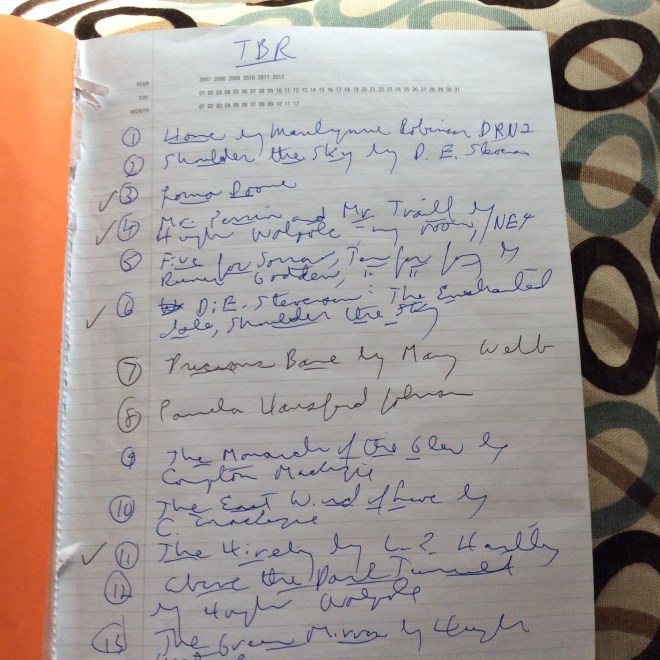 TBR
YEAR 2007 2008 2009 2010 2011 2012
DAY 01 02 03 04 05 06 07 08 09 10 11 12 13 14 15 16 17 18 19 20 21 22 23 24 25 26 27 28 29 30 31
MONTH 01 02 03 04 05 06 07 08 09 10 11 12
1 Home by Marilynne Robinson DRN2
2 Shoulder the Sky by D. E. Stevenson
3 Lorna Doone
4 Mr. Perrin and Mr Traill by
Hugh Walpole - my room, /NE4
5 Five for Sorrow, Ten for Joy by
Rumer Godden,
6 D.E. Stevenson: The Enchanted
Isle, Shoulder the Sky
7 Precious Bane by Mary Webb
8 Pamela Hansford Johnson
9 The Monarch of the Glen by
Compton Mackenzie
10 The East Wind of Love by
C. Mackenzie
11 The Hireling by L. P. Hartley
12 Above the Dark Tumult
by Hugh Walpole
13 The Green Mirror by Hugh